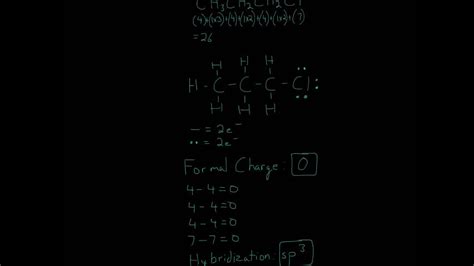 CH3CH2CH2Cl
(4)+(1x3)+(4)+(1x2)+(4)+(1x2)+(7)
=26
H H H
H-C-C-C-Cl:
H H H
— = 2e⁻
•• = 2e⁻
Formal Charge: 0
4-4=0
4-4=0
4-4=0
7-7=0
Hybridization: sp³